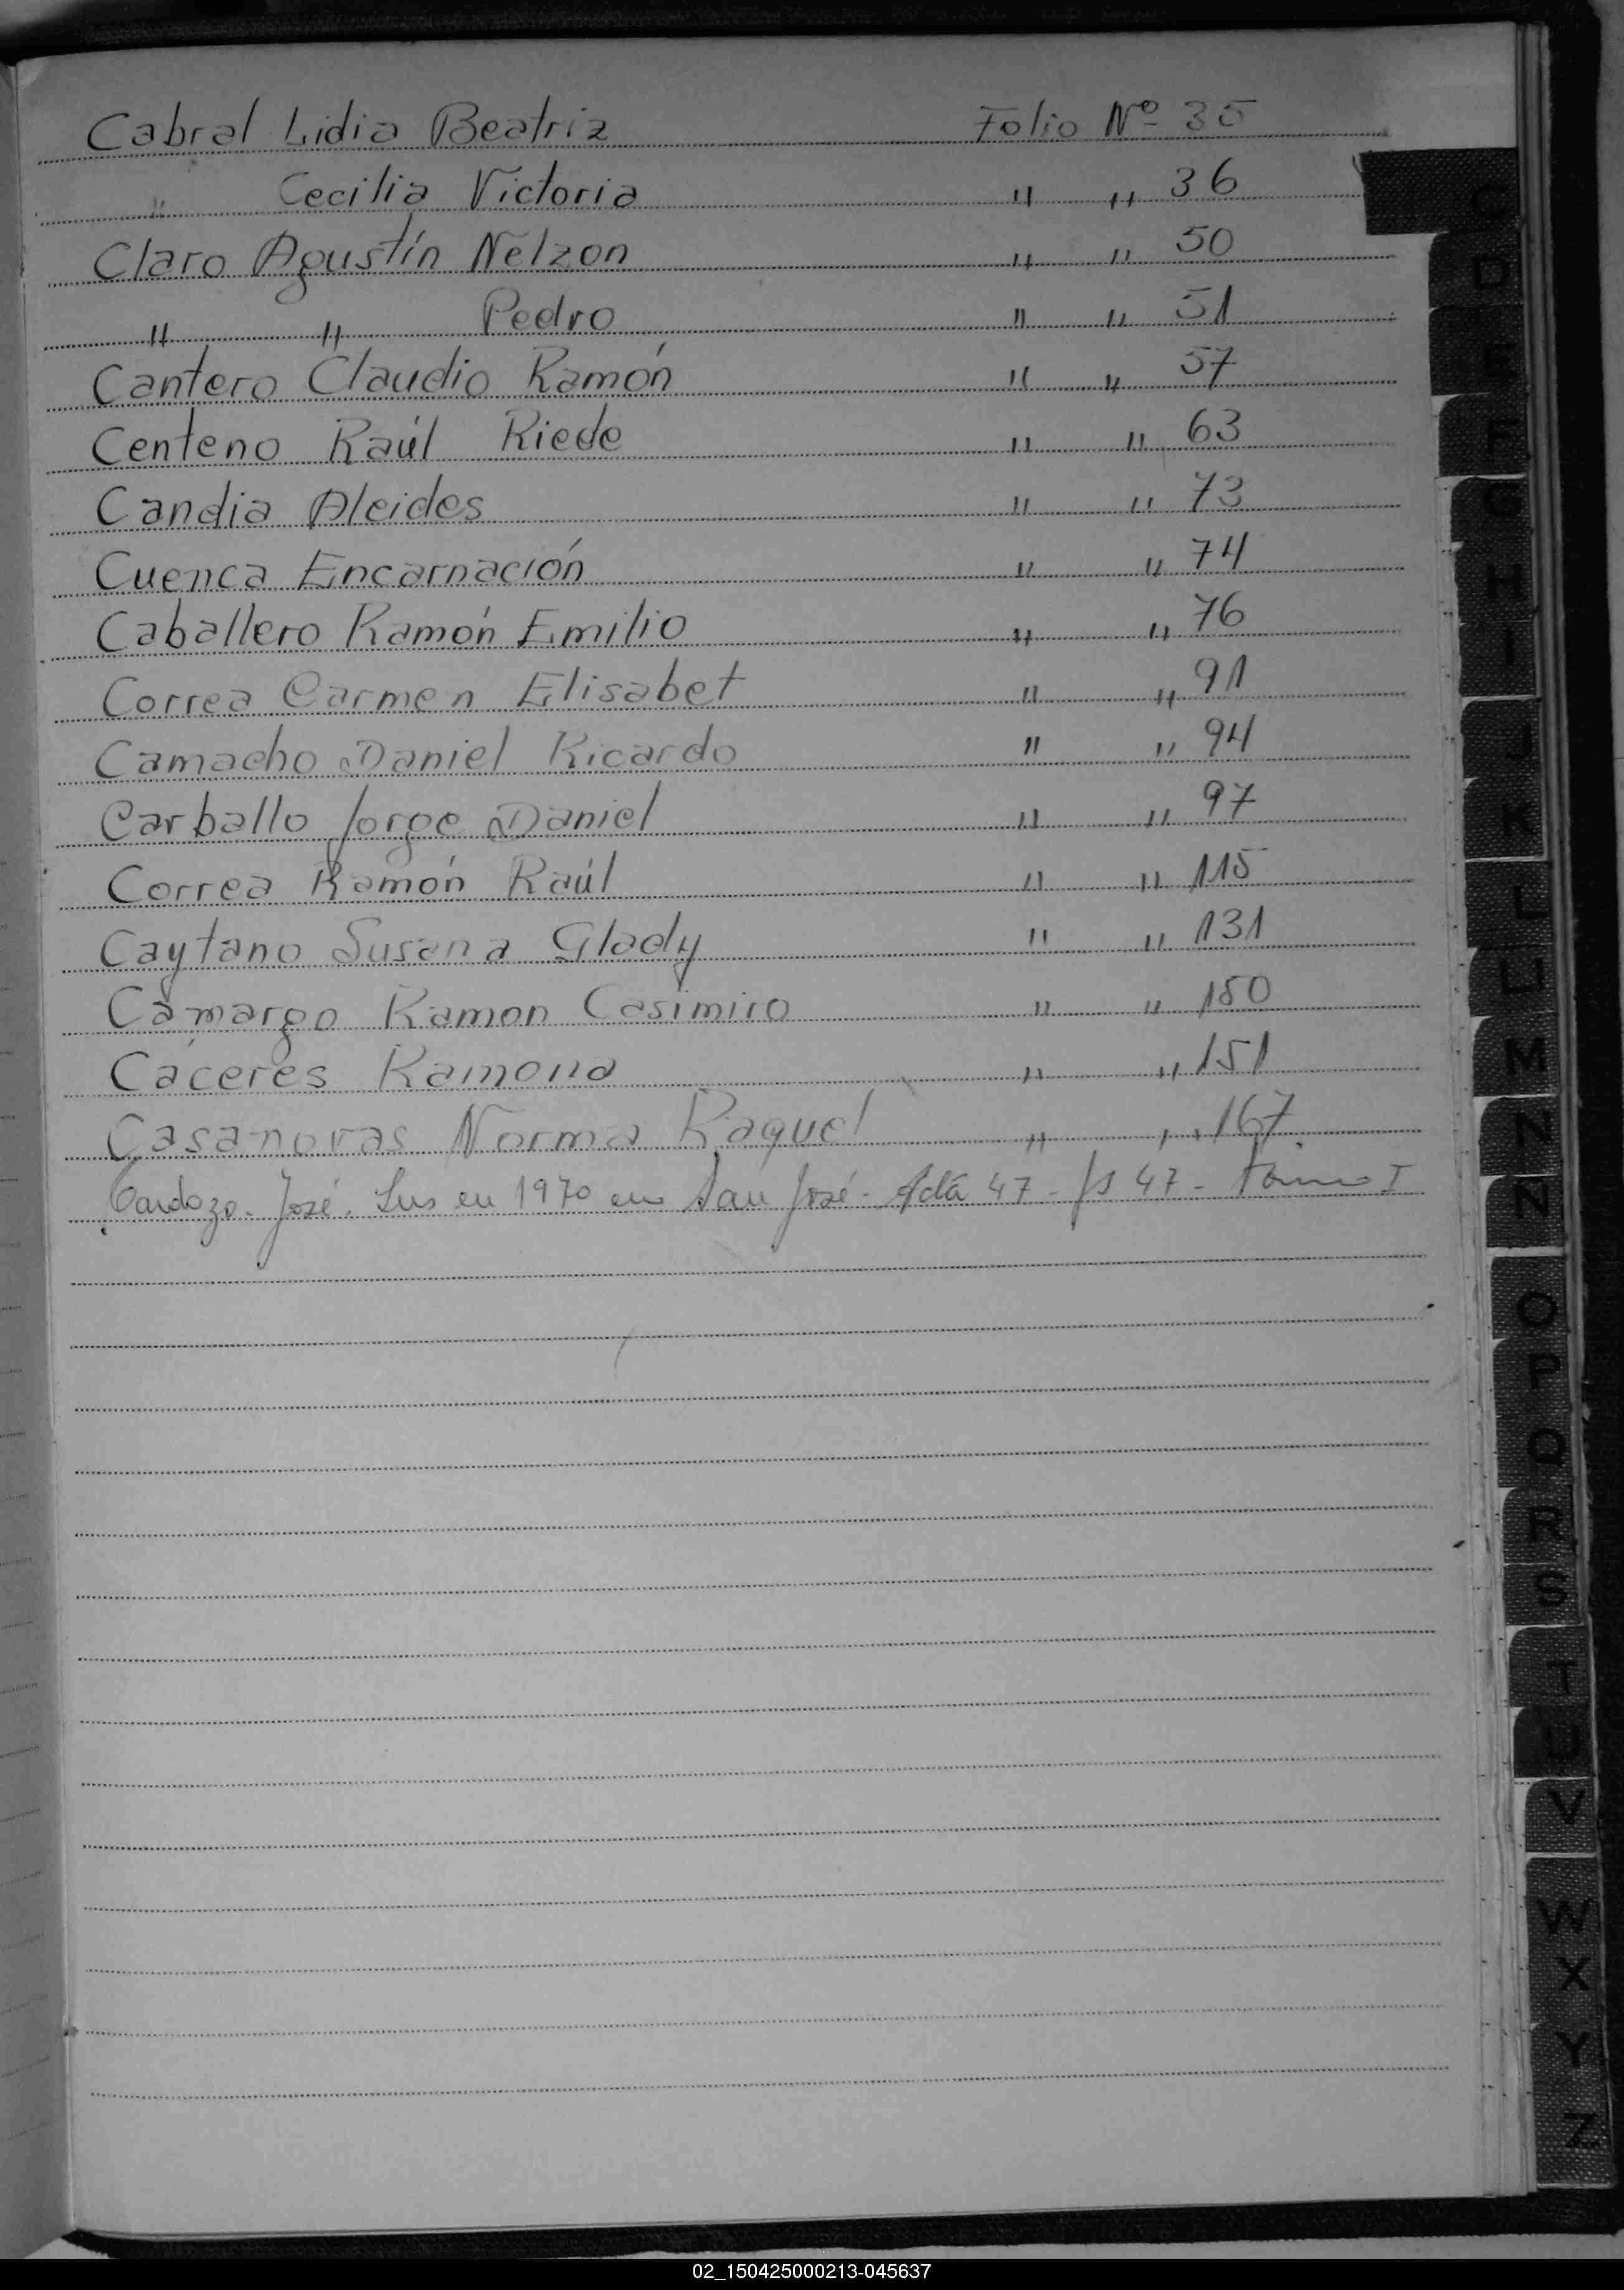 Cabral Lidia Beatriz Folio Nº 35
" Cecilia Victoria " " 36
Claro Agustín Nelzon " " 50
" " Pedro " " 51
Cantero Claudio Ramón " " 57
Centeno Raúl Riede " " 63
Candia Aleides " " 73
Cuenca Encarnación " " 74
Caballero Ramón Emilio " " 76
Correa Carmen Elisabet " " 91
Camacho Daniel Ricardo " " 94
Carballo Jorge Daniel " " 97
Correa Ramón Raúl " " 115
Caytano Susana Glady " " 131
Camargo Ramon Casimiro " " 150
Cáceres Ramona " " 151
Casanovas Norma Raquel " " 167.
Cardozo. José. Ins en 1970 en San José - Acta 47 - fs 47 - Tomo I
C
D
E
F
G
H
I
J
K
L
LL
M
N
Ñ
O
P
Q
R
S
T
U
V
W
X
Y
Z
02_150425000213-045637